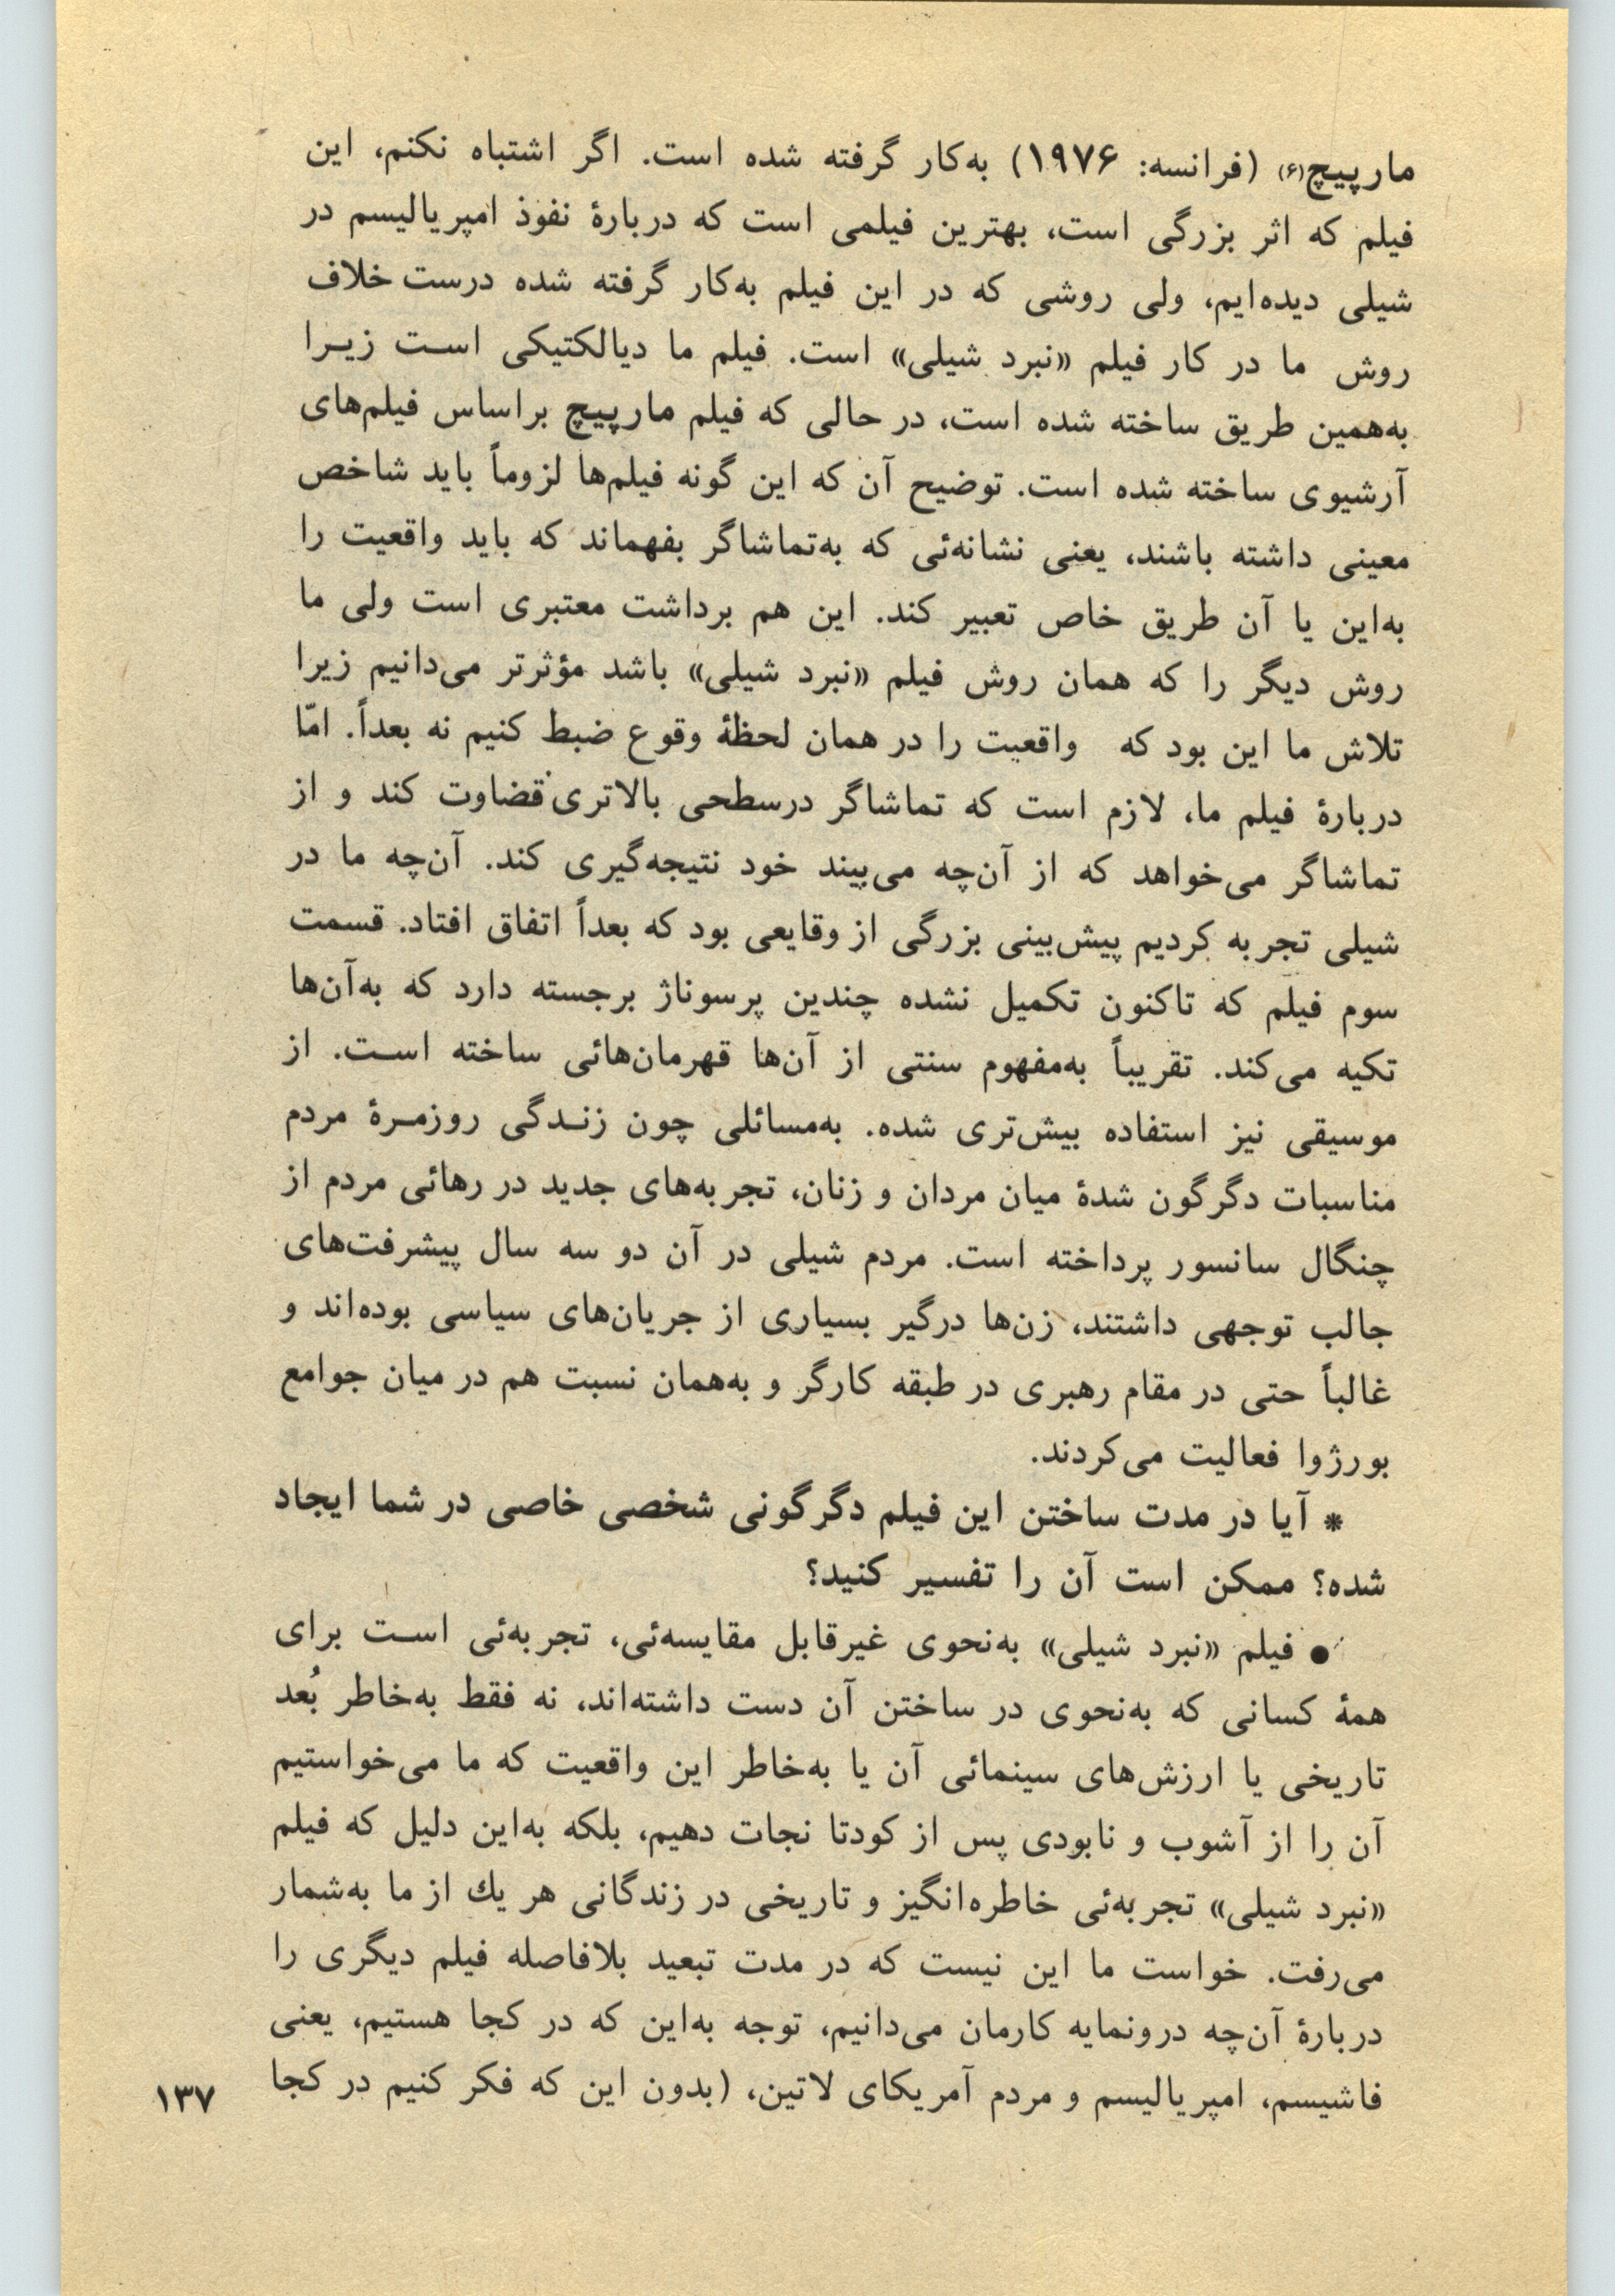 مارپیچ(۶) (فرانسه: ۱۹۷۶) به‌کار گرفته شده است. اگر اشتباه نکنم، این
فیلم که اثر بزرگی است، بهترین فیلمی است که دربارهٔ نفوذ امپریالیسم در
شیلی دیده‌ایم، ولی روشی که در این فیلم به‌کار گرفته شده درست خلاف
روش ما در کار فیلم «نبرد شیلی» است. فیلم ما دیالکتیکی اسـت زیـرا
به‌همین طریق ساخته شده است، در حالی که فیلم مارپیچ براساس فیلم‌های
آرشیوی ساخته شده است. توضیح آن که این گونه فیلم‌ها لزوماً باید شاخص
معینی داشته باشند، یعنی نشانه‌ئی که به‌تماشاگر بفهماند که باید واقعیت را
به‌این یا آن طریق خاص تعبیر کند. این هم برداشت معتبری است ولی ما
روش دیگر را که همان روش فیلم «نبرد شیلی» باشد مؤثرتر می‌دانیم زیرا
تلاش ما این بود که واقعیت را در همان لحظهٔ وقوع ضبط کنیم نه بعداً. امّا
دربارهٔ فیلم ما، لازم است که تماشاگر درسطحی بالاتری قضاوت کند و از
تماشاگر می‌خواهد که از آن‌چه می‌بیند خود نتیجه‌گیری کند. آن‌چه ما در
شیلی تجربه کردیم پیش‌بینی بزرگی از وقایعی بود که بعداً اتفاق افتاد. قسمت
سوم فیلم که تاکنون تکمیل نشده چندین پرسوناژ برجسته دارد که به‌آن‌ها
تکیه می‌کند. تقریباً به‌مفهوم سنتی از آن‌ها قهرمان‌هائی ساخته اسـت. از
موسیقی نیز استفاده بیش‌تری شده. به‌مسائلی چون زنـدگی روزمـرهٔ مردم
مناسبات دگرگون شدهٔ میان مردان و زنان، تجربه‌های جدید در رهائی مردم از
چنگال سانسور پرداخته است. مردم شیلی در آن دو سه سال پیشرفت‌های
جالب توجهی داشتند، زن‌ها درگیر بسیاری از جریان‌های سیاسی بوده‌اند و
غالباً حتی در مقام رهبری در طبقه کارگر و به‌همان نسبت هم در میان جوامع
بورژوا فعالیت می‌کردند.
* آیا در مدت ساختن این فیلم دگرگونی شخصی خاصی در شما ایجاد
شده؟ ممکن است آن را تفسیر کنید؟
● فیلم «نبرد شیلی» به‌نحوی غیرقابل مقایسه‌ئی، تجربه‌ئی اسـت برای
همهٔ کسانی که به‌نحوی در ساختن آن دست داشته‌اند، نه فقط به‌خاطر بُعد
تاریخی یا ارزش‌های سینمائی آن یا به‌خاطر این واقعیت که ما می‌خواستیم
آن را از آشوب و نابودی پس از کودتا نجات دهیم، بلکه به‌این دلیل که فیلم
«نبرد شیلی» تجربه‌ئی خاطره‌انگیز و تاریخی در زندگانی هر یك از ما به‌شمار
می‌رفت. خواست ما این نیست که در مدت تبعید بلافاصله فیلم دیگری را
دربارهٔ آن‌چه درونمایه کارمان می‌دانیم، توجه به‌این که در کجا هستیم، یعنی
فاشیسم، امپریالیسم و مردم آمریکای لاتین، (بدون این که فکر کنیم در کجا
۱۳۷